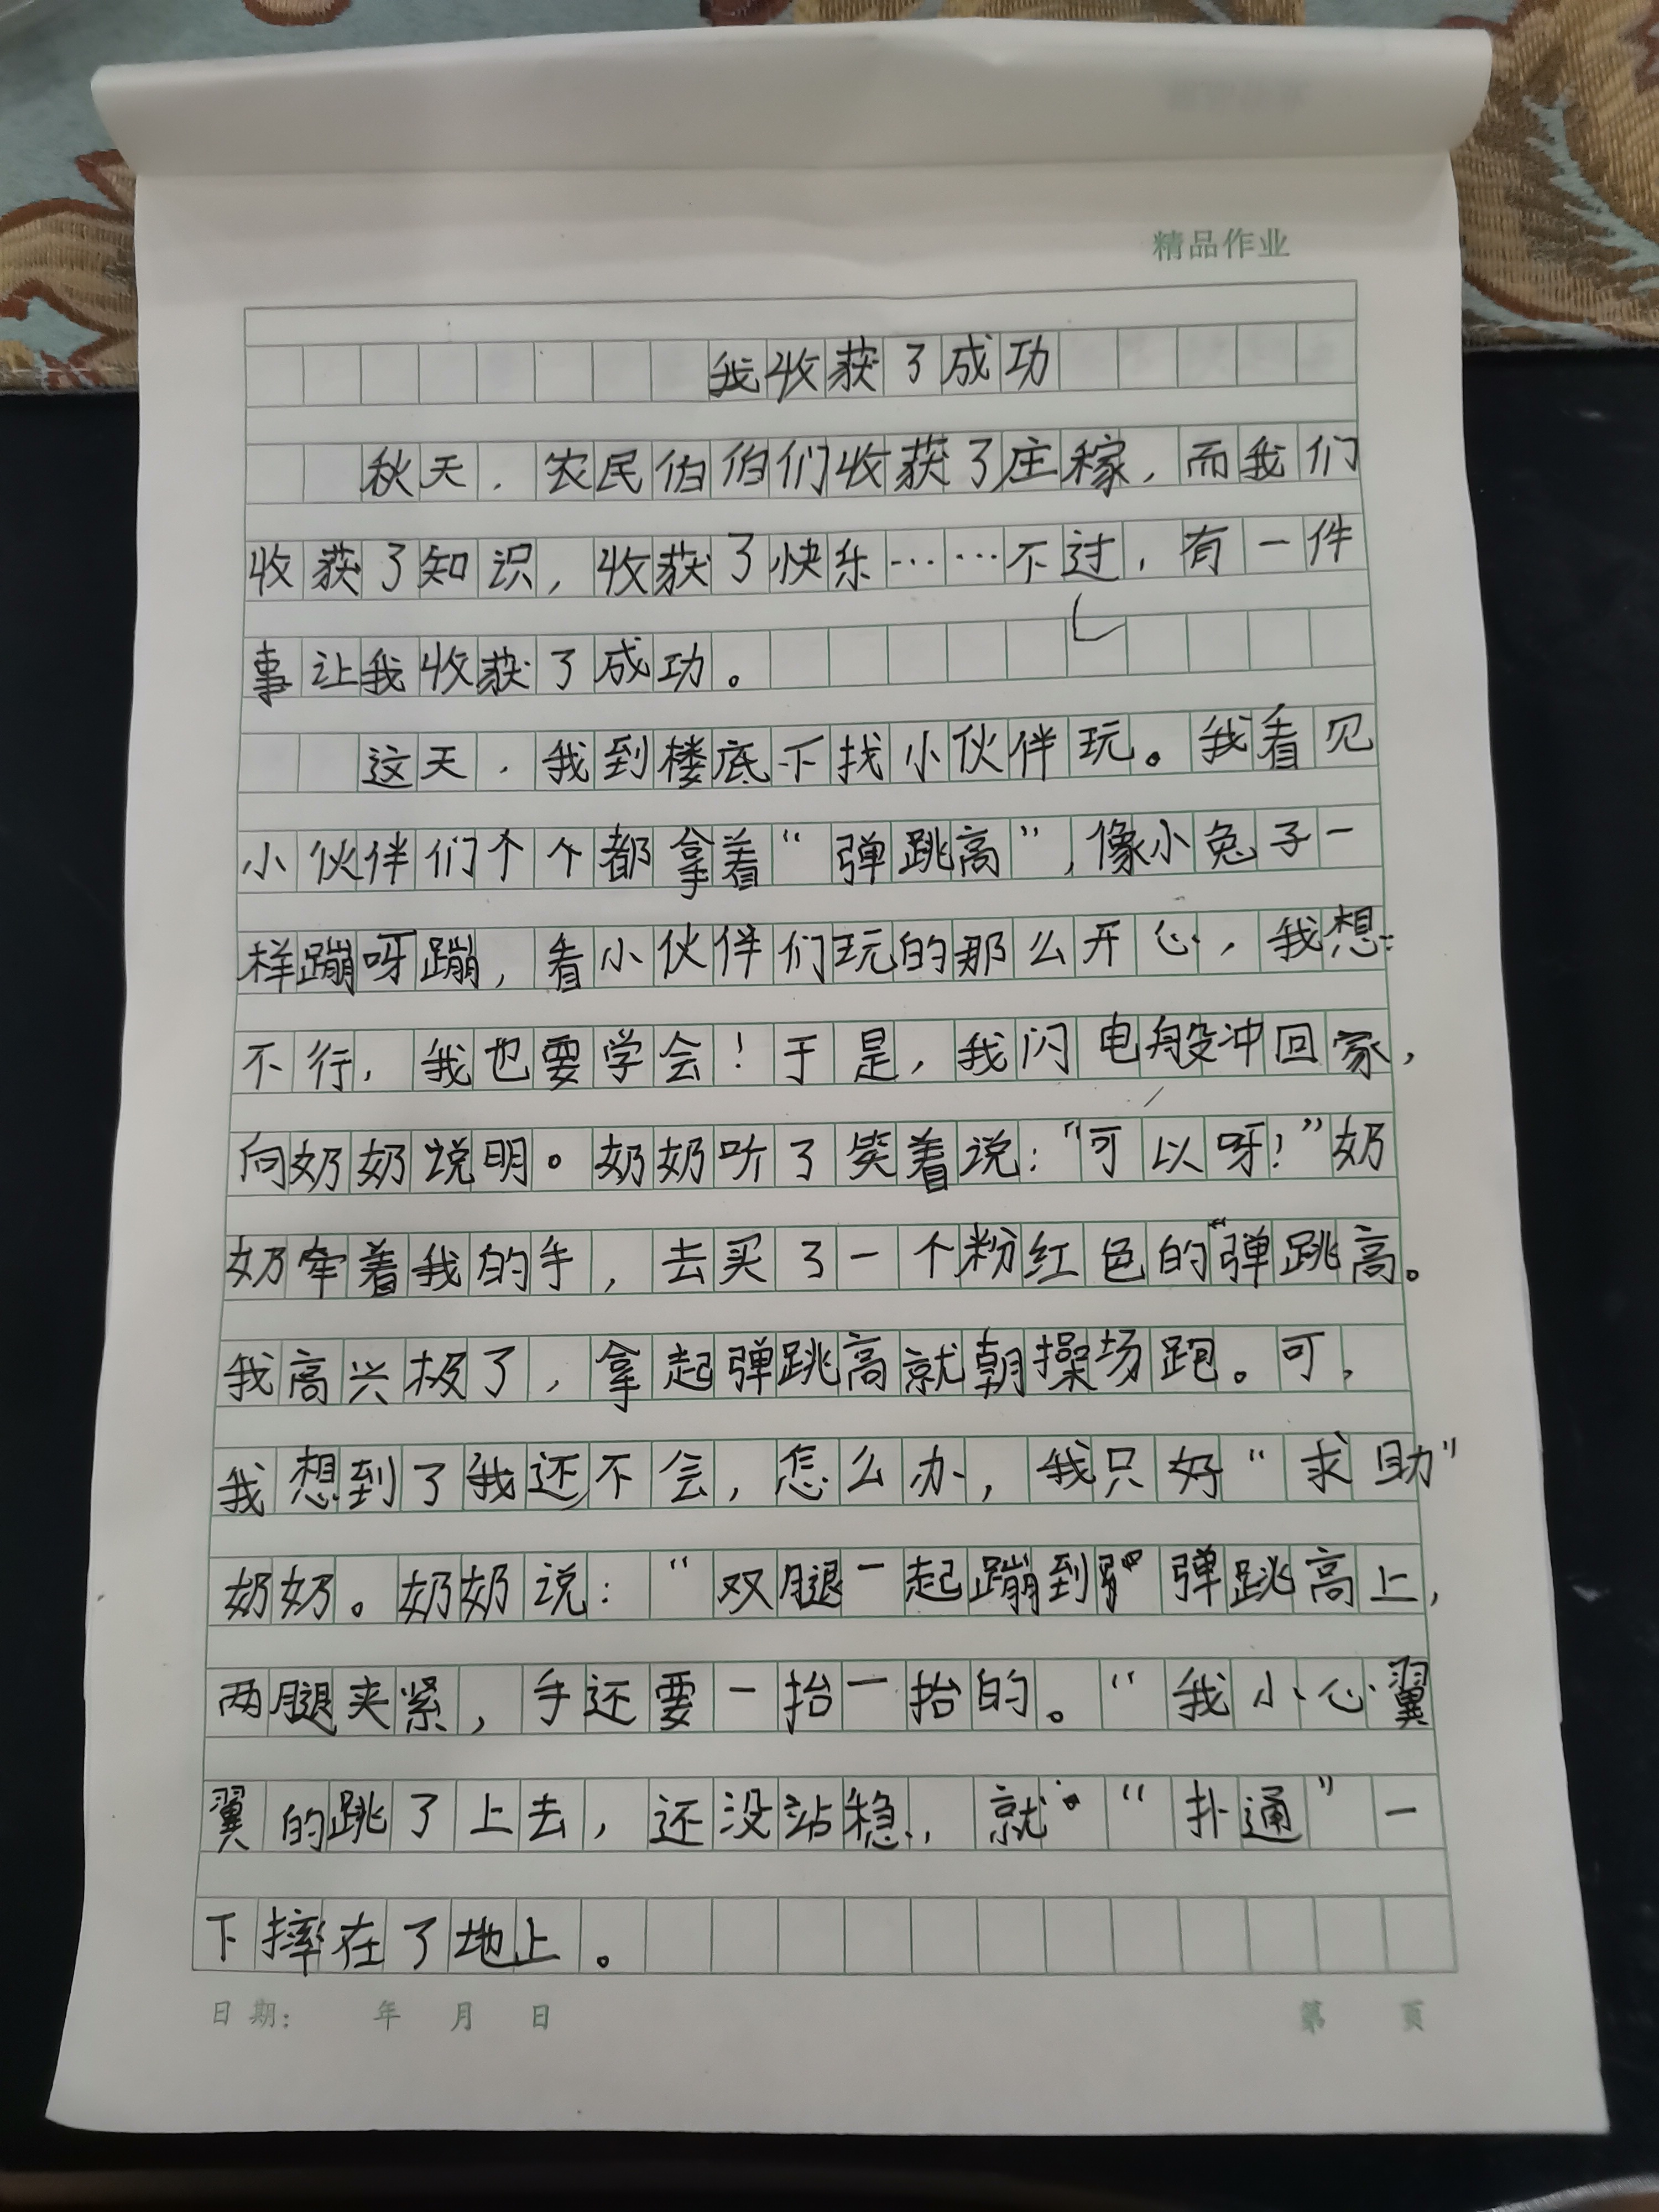 精品作业
我收获了成功
秋天，农民伯伯们收获了庄稼，而我们
收获了知识，收获了快乐……不过，有一件
事让我收获了成功。
这天，我到楼底下找小伙伴玩。我看见
小伙伴们个个都拿着“弹跳高”，像小兔子一
样蹦呀蹦，看小伙伴们玩的那么开心，我想：
不行，我也要学会！于是，我闪电般冲回家，
向奶奶说明。奶奶听了笑着说：“可以呀！”奶
奶牵着我的手，去买了一个粉红色的“弹跳高。
我高兴极了，拿起弹跳高就朝操场跑。可，
我想到了我还不会，怎么办，我只好“求助”
奶奶。奶奶说：“双腿一起蹦到弹跳高上，
两腿夹紧，手还要一抬一抬的。“我小心翼
翼的跳了上去，还没站稳，就“扑通”一
下摔在了地上。
日期： 年 月 日 第 页